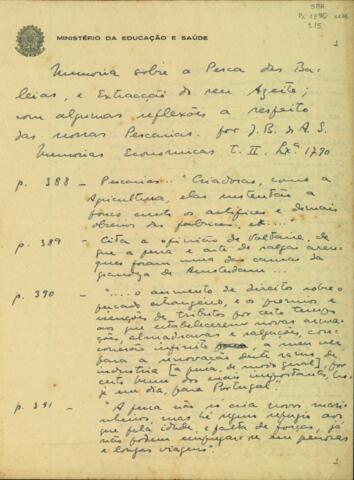 SBH
Pi 238
2/5
MINISTÉRIO DA EDUCAÇÃO E SAÚDE
1
Memoria sobre a Pesca das Ba-
leias, e Extracção do seu Azeite;
com algumas reflexões a respeito
das nossas Pescarias. por J.B. de A.S.
Memorias Economicas T. II. Lxª. 1790
p. 388 - Pescarias.. "Criadoras, como a
Agricultura, elas sustentão a
artifices e demais
obreiros das fabricas, et...."
p. 389 - Cita a opinião de
que a pesca e arte de salgar aren-
ques foram uma das causas da
grandeza de Amsterdam...
p. 390 - "..... o aumento de direitos sobre o
pescado estrangeiro, e os premios e
izenções de tributos por certo tempo
aos que estabelecerem novas arma-
ções, almadravas e salgações, con-
correrão infinito a meu ver
para a renovação deste ramo de
industria [a pesca, de modo geral], por
certo hum dos mais importantes, ha-
ja um dia, para Portugal"
p. 391 - "A pesca não só cria novos mari-
nheiros, mas hé seguro refugio aos
que pela idade, e falta de forças, já
não podem empregar-se em penosas
e longas viagens".
1